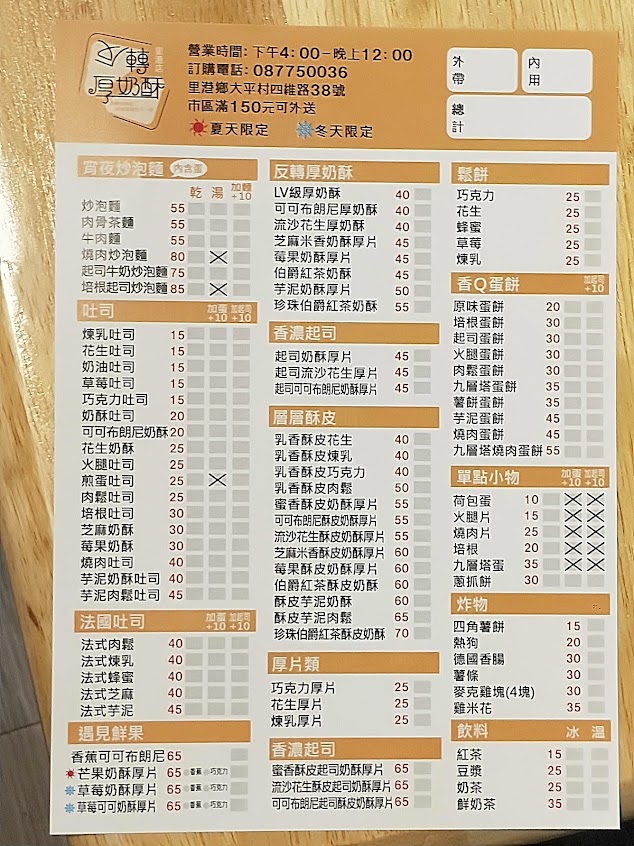 轉
厚奶酥
里港店
營業時間: 下午4：00-晚上12：00
訂購電話: 087750036
里港鄉大平村四維路38號
市區滿150元可外送
夏天限定 冬天限定
外帶
內用
總計
宵夜炒泡麵 內含蛋
乾 湯 加麵+10
炒泡麵 55
肉骨茶麵 55
牛肉麵 55
燒肉炒泡麵 80
起司牛奶炒泡麵 75
培根起司炒泡麵 85
吐司 加蛋+10 加起司+10
煉乳吐司 15
花生吐司 15
奶油吐司 15
草莓吐司 15
巧克力吐司 15
奶酥吐司 20
可可布朗尼奶酥 20
花生奶酥 25
火腿吐司 25
煎蛋吐司 25
肉鬆吐司 25
培根吐司 30
芝麻奶酥 30
莓果奶酥 30
燒肉吐司 40
芋泥奶酥吐司 40
芋泥肉鬆吐司 45
法國吐司 加蛋+10 加起司+10
法式肉鬆 40
法式煉乳 40
法式蜂蜜 40
法式芝麻 40
法式芋泥 45
遇見鮮果
香蕉可可布朗尼 65
芒果奶酥厚片 65 香蕉 巧克力
草莓奶酥厚片 65 香蕉 巧克力
草莓可可奶酥厚片 65 香蕉 巧克力
反轉厚奶酥
LV級厚奶酥 40
可可布朗尼厚奶酥 40
流沙花生厚奶酥 40
芝麻米香奶酥厚片 45
莓果奶酥厚片 45
伯爵紅茶奶酥 45
芋泥奶酥厚片 50
珍珠伯爵紅茶奶酥 55
香濃起司
起司奶酥厚片 45
起司流沙花生厚片 45
起司可可布朗尼奶酥厚片 45
層層酥皮
乳香酥皮花生 40
乳香酥皮煉乳 40
乳香酥皮巧克力 40
乳香酥皮肉鬆 50
蜜香酥皮奶酥厚片 55
可可布朗尼酥皮奶酥厚片 55
流沙花生酥皮奶酥厚片 55
芝麻米香酥皮奶酥厚片 60
莓果酥皮奶酥厚片 60
伯爵紅茶酥皮奶酥 60
酥皮芋泥奶酥 60
酥皮芋泥肉鬆 65
珍珠伯爵紅茶酥皮奶酥 70
厚片類
巧克力厚片 25
花生厚片 25
煉乳厚片 25
香濃起司
蜜香酥皮起司奶酥厚片 65
流沙花生酥皮起司奶酥厚片 65
可可布朗尼起司酥皮奶酥厚片 65
鬆餅
巧克力 25
花生 25
蜂蜜 25
草莓 25
煉乳 25
香Q蛋餅 加起司+10
原味蛋餅 20
培根蛋餅 30
起司蛋餅 30
火腿蛋餅 30
肉鬆蛋餅 30
九層塔蛋餅 35
薯餅蛋餅 35
芋泥蛋餅 45
燒肉蛋餅 45
九層塔燒肉蛋餅 55
單點小物 加蛋+10 加起司+10
荷包蛋 10
火腿片 15
燒肉片 25
培根 20
九層塔蛋 35
蔥抓餅 30
炸物
四角薯餅 15
熱狗 20
德國香腸 30
薯條 30
麥克雞塊(4塊) 30
雞米花 35
飲料 冰 溫
紅茶 15
豆漿 25
奶茶 25
鮮奶茶 35